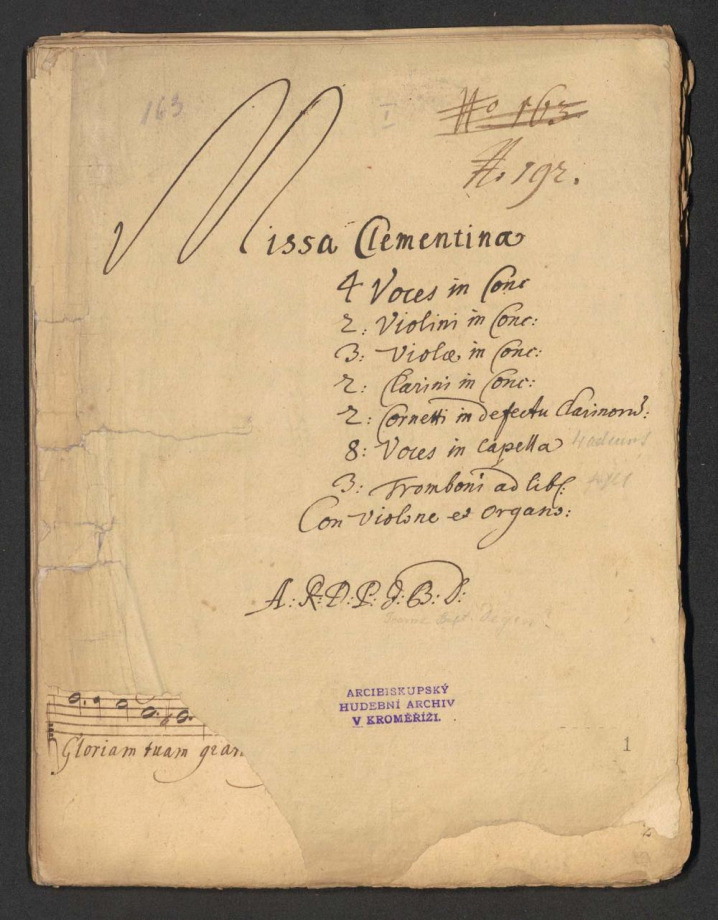 163
I
No 163
No 192.
Missa Clementina
4 Voces in Conc
2: Violini in Conc:
3: Violæ in Conc:
2: Clarini in Conc:
2: Cornetti in defectu Clarinorū:
8: Voces in Capella
3: Tromboni ad lib:
Con Violone et Organo:
A: R: D: P: J: B: D:
ARCIBISKUPSKÝ
HUDEBNÍ ARCHIV
V KROMĚŘÍŽI.
1
Gloriam tuam gran